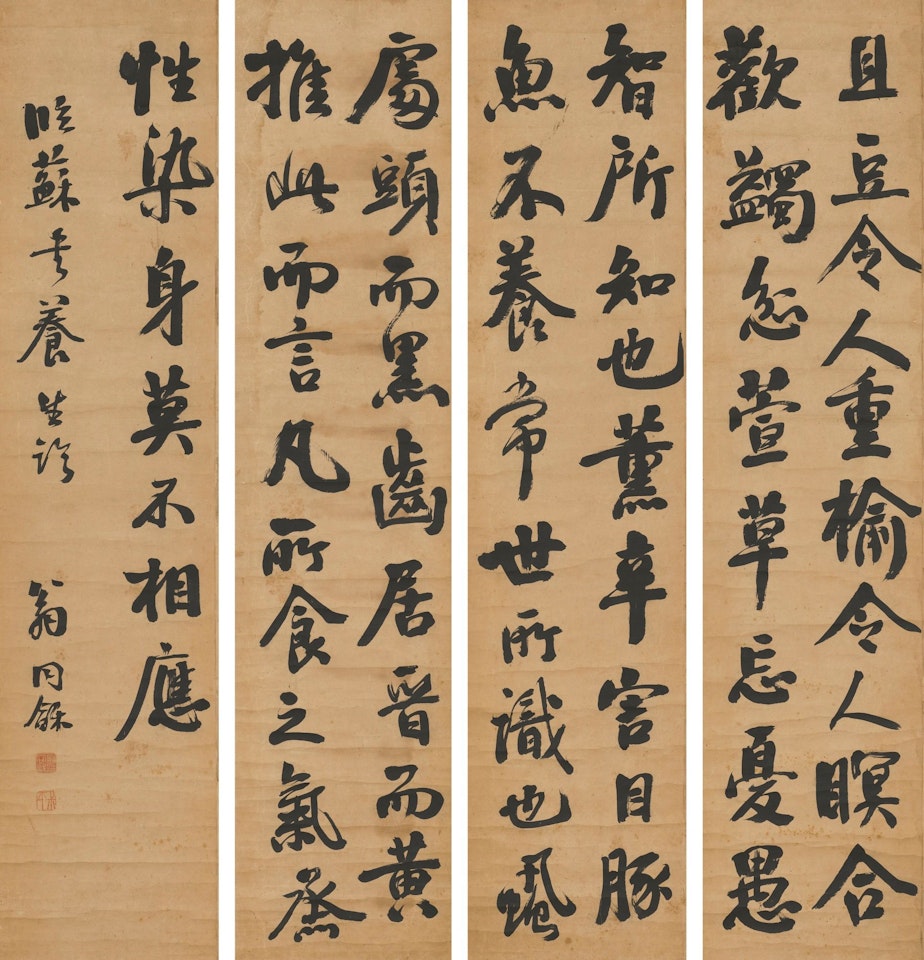 且豆令人重榆令人瞑合
歡蠲忿萱草忘憂愚
智所知也薰辛害目豚
魚不養常世所識也蝨
處頭而黑齒居晉而黃
推此而言凡所食之氣蒸
性染身莫不相應
臨蘇書養生論 翁同龢